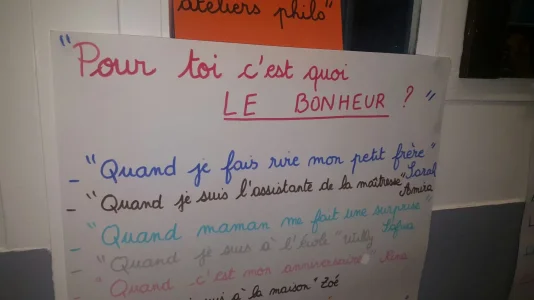 ateliers philo"
"Pour toi c'est quoi
LE BONHEUR ? "
- "Quand je fais rire mon petit frère" Sarah
- "Quand je suis l'assistante de la maîtresse" Amira
- "Quand maman me fait une surprise" Safua
- "Quand je suis à l'école" Willy
- "Quand c'est mon anniversaire"
à la maison" Zoé